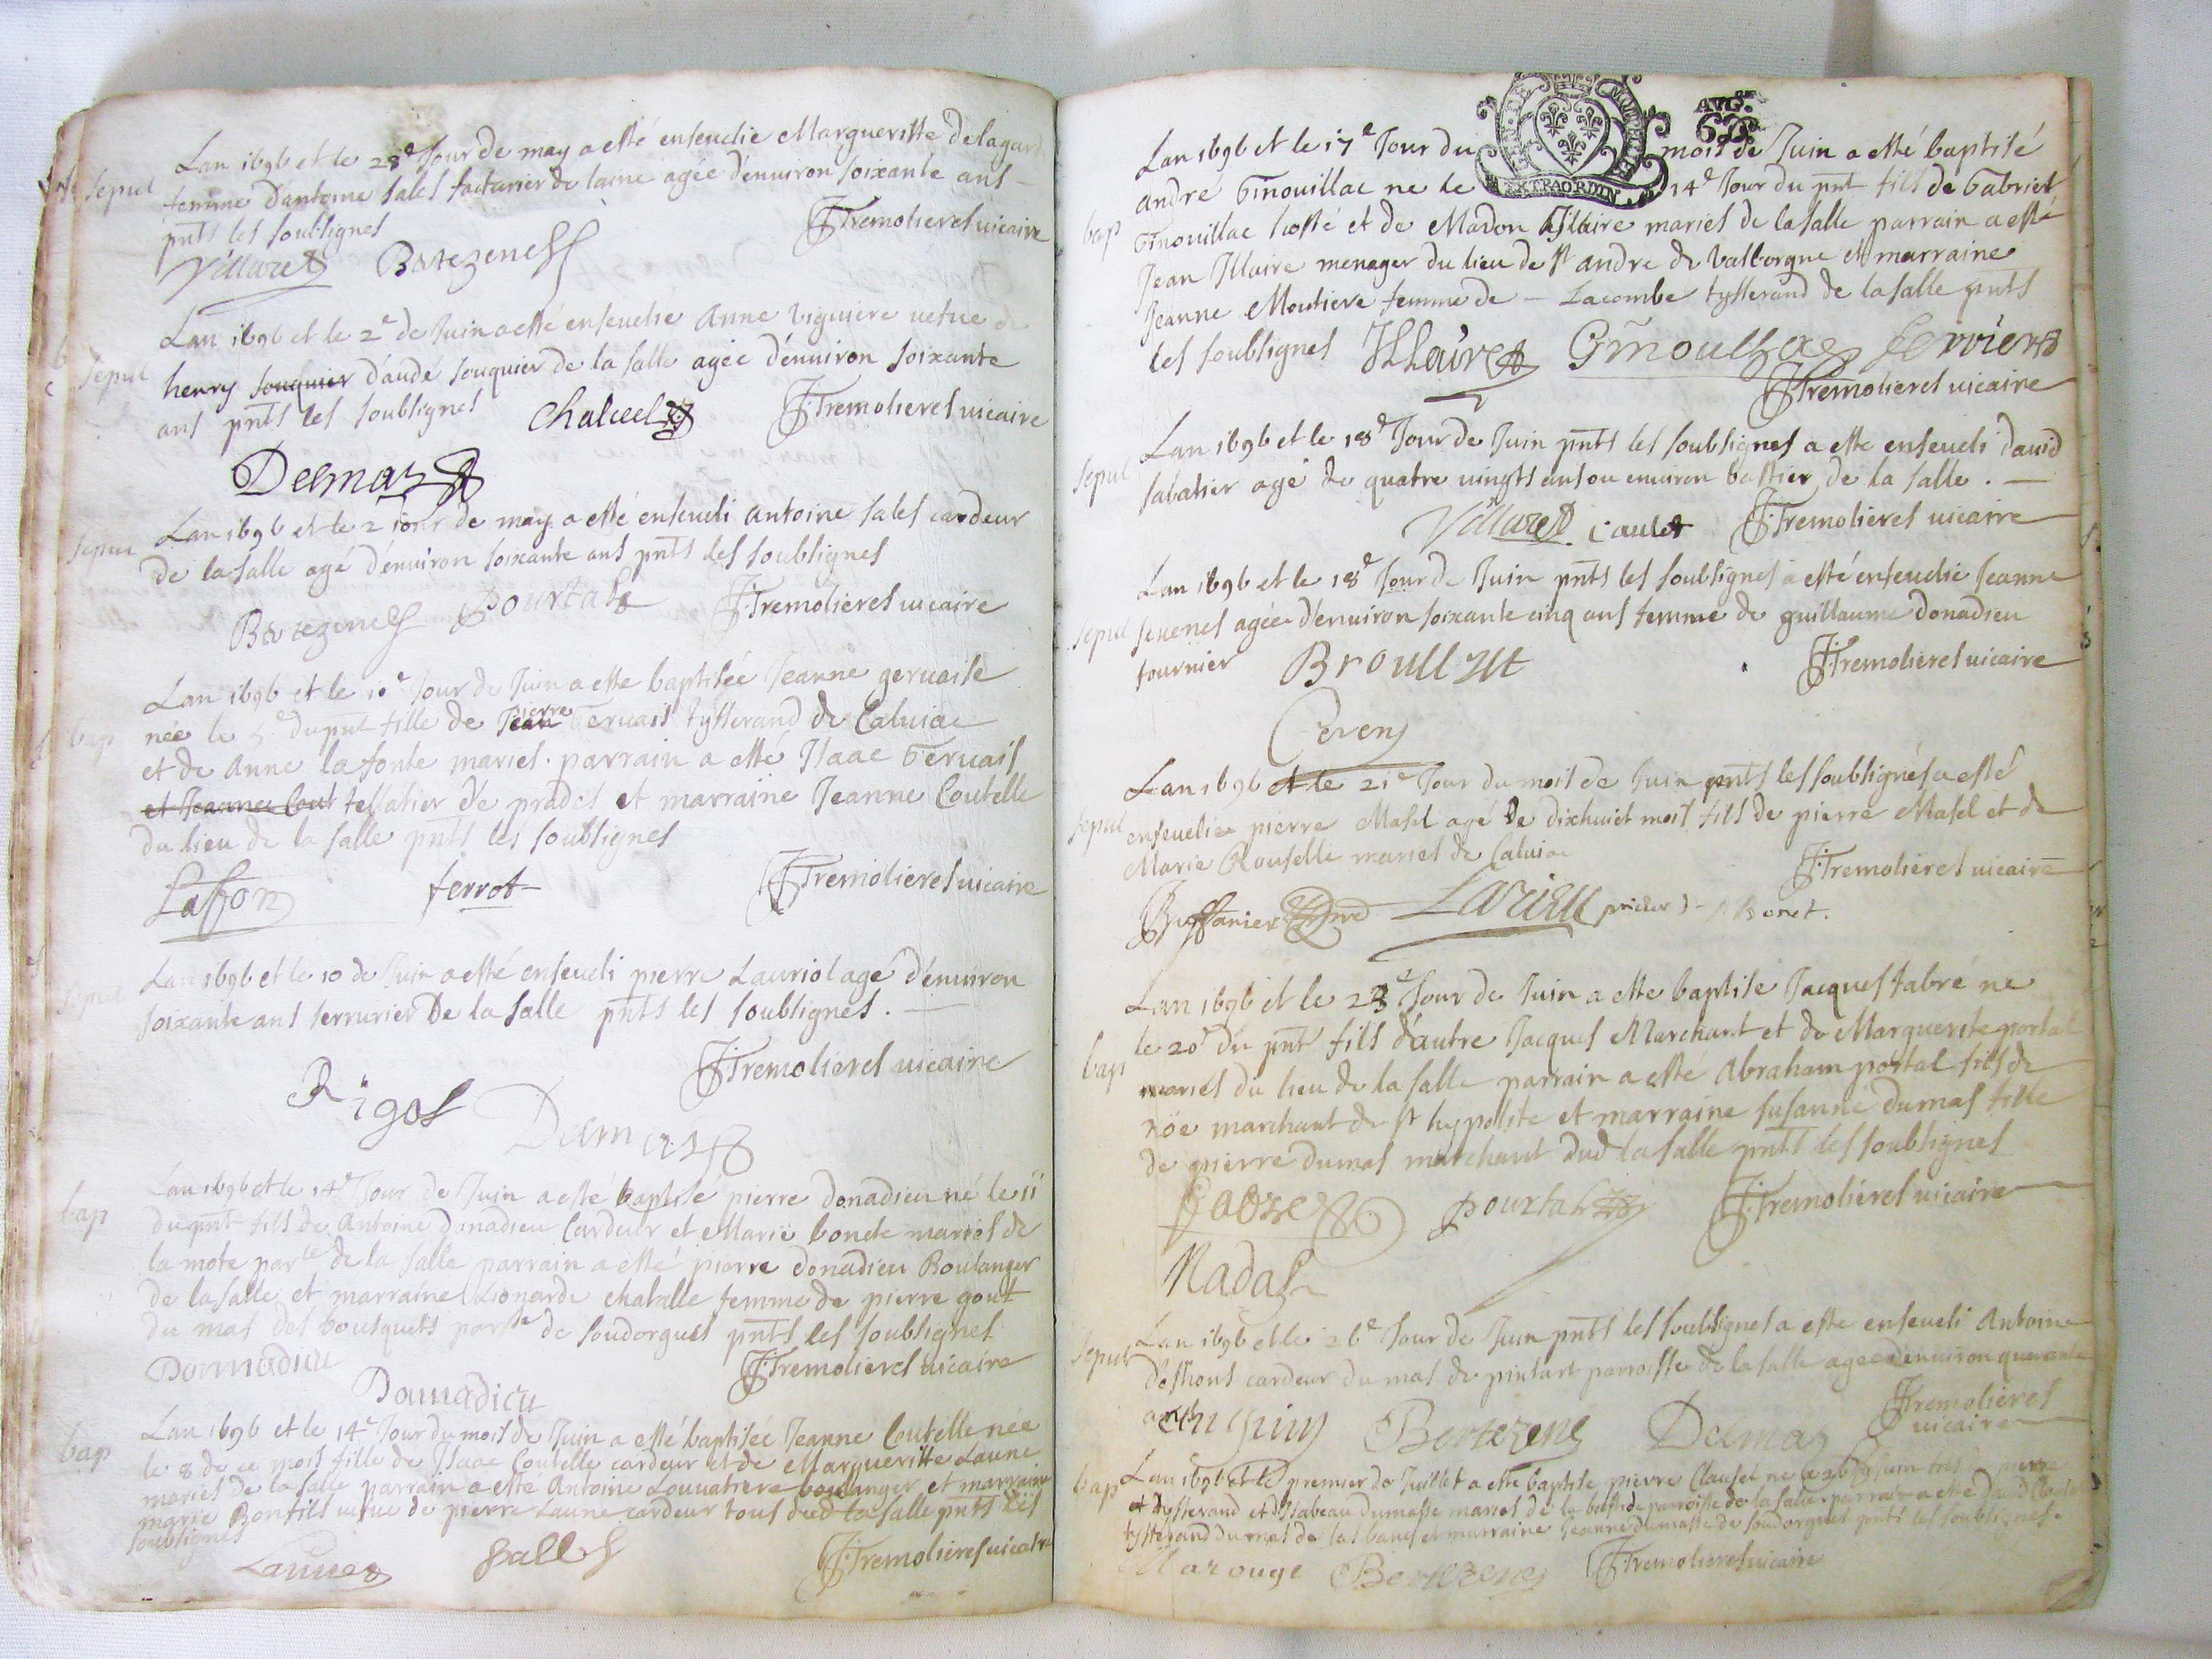 sepul
Lan 1696 et le 28e Jour de may a esté enseuelie Margueritte delagard
femme d'antoine sales facturier de laine agée d'enuiron soixante ans
pnts les soubsignes
J Tremolieres uicaire
Villaret Bertezenes
sepul
Lan 1696 et le 2e de Juin a esté enseuelie Anne viguiere uefue de
henry souquier d'audé souquier de la salle agée d'enuiron soixante
ans pnts les soubsignes chalcel J Tremolieres uicaire
Delmas
sepul
Lan 1696 et le 2 iour de may a esté enseueli antoine sales cardeur
de la salle agé d'enuiron soixante ans pnts les soubsignes
Bertezenes Pourtal J Tremolieres uicaire
bap
Lan 1696 et le 10e Jour de Juin a esté baptisée Jeanne geruaise
née le 5e du pnt fille de Jean pierre Geruais tysserand de Caluiac
et de Anne lafonte mariés. parrain a esté Isaac Geruais
et Jeanne Cout tessatier de prades et marraine Jeanne Coutelle
du lieu de la salle pnts les soubsignes
Laffon ferrot J Tremolieres uicaire
sepul
Lan 1696 et le 10 de Juin a esté enseueli pierre Lauriol agé d'enuiron
soixante ans serrurier de la salle pnts les soubsignes.
J Tremolieres uicaire
Rigal Delmas
bap
Lan 1696 et le 14e Jour de Juin a esté baptisé pierre donadieu né le 11
du pnt fils de Antoine donadieu Cardeur et Marie bonete mariés de
la mote parsse de la salle parrain a esté pierre donadieu Boulanger
de la salle et marraine Lionarde chabalte femme de pierre gout
du mas des bousquets parsse de soudorgues pnts les soubsignes
Donnadieu J Tremolieres uicaire
Donnadieu
bap
Lan 1696 et le 14e Jour du mois de Juin a esté baptisée Jeanne Coutelle née
le 8 de ce mois fille de Isaac Coutelle cardeur et de Margueritte Laune
mariés de la salle parrain a esté Antoine Louuatiere boulanger et marraine
marie Bonfils uefue de pierre Laune cardeur tous dud la salle pnts les
soubsignes
Launes Salles J Tremolieres uicaire
GEN. DE MONTPELLIER
EXTRAORDIN
AVG.
bap
Lan 1696 et le 17e Jour du mois de Juin a esté baptisé
andre Ginouillac ne le 14e Jour du pnt fils de Gabriel
Ginouillac hoste et de Madon Illaire mariés de la salle parrain a esté
Jean Illaire menager du lieu de st andre de Valborgne et marraine
Jeanne Moutiere femme de – Lacombe tysserand de la salle pnts
les soubsignes Illaire Ginoulhac ferriere
J Tremolieres uicaire
sepul
Lan 1696 et le 18e Jour de Juin pnts les soubsignes a esté enseueli dauid
sabatier agé de quatre uingts ans ou enuiron bastier de la salle.
Villaret Caulet J Tremolieres uicaire
sepul
Lan 1696 et le 18e Jour de Juin pnts les soubsignes a esté enseuelie Jeanne
seuenes agée d'enuiron soixante cinq ans femme de guillaume donadieu
fournier Broulhet J Tremolieres uicaire
Cerens
sepul
Lan 1696 et le 21e Jour du mois de Juin pnts les soubsignés a esté
enseuelie pierre Masel agé de dixhuict mois fils de pierre Masel et de
Marie Rouselle mariés de Caluiac
J Tremolieres uicaire
Lavieu prieur Bonet.
bap
Lan 1696 et le 23e Jour de Juin a esté baptisé Jacques fabre ne
le 20e du pnt fils d'autre Jacques Marchant et de Marguerite portal
mariés du lieu de la salle parrain a esté Abraham portal fils de
nöe marchant de st hypolite et marraine susanne dumas fille
de pierre dumas marchant dud la salle pnts les soubsignes
fabre pourtal J Tremolieres uicaire
Nadal
sepul
Lan 1696 et le 26e Jour de Juin pnts les soubsignes a esté enseueli Antoine
deshons cardeur du mas de pintart parroisse de la salle agee denuiron quarante
ans Bertezene Delmas J Tremolieres
uicaire
bap
Lan 1696 et le premier de Juillet a esté baptisé pierre Clausel ne le 26 Juin fils pierre
et tysserand et d'Isabeau dumasse mariés de la bastide parroisse de la salle. parrain a esté Dauid
tysserand du mas de las bauos et marraine Jeanne dumasse de soudorgues pnts les soubsignes.
Marouge Bertezene J Tremolieres uicaire